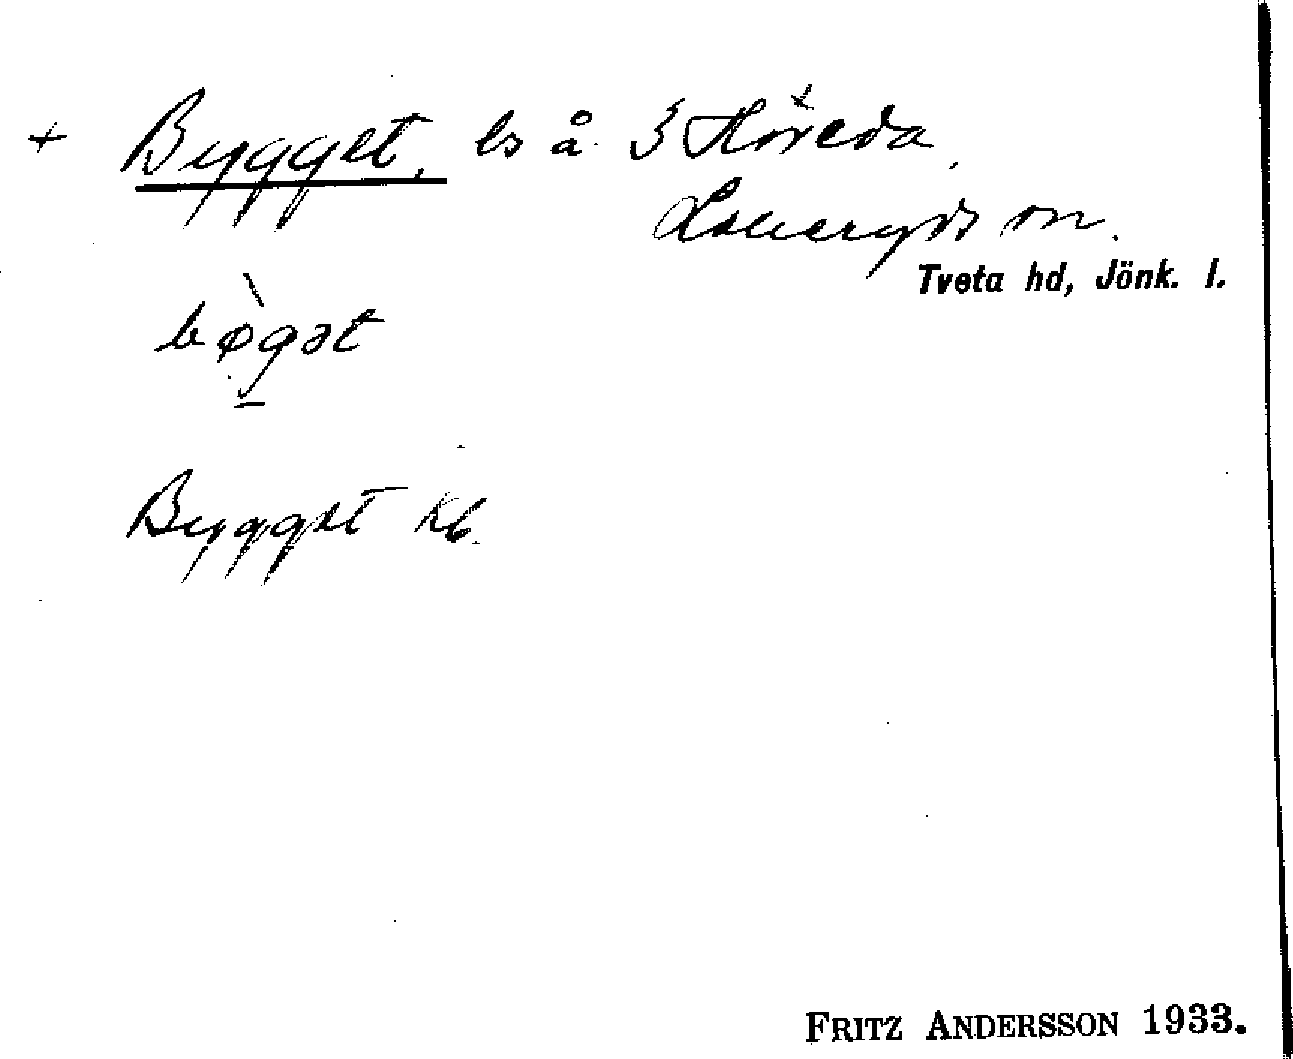 + Bygget, ls å 3 Höreda,
Lekeryds sn.
Tveta hd, Jönk. l.
bògət
Bygget Kb.
FRITZ ANDERSSON 1933.